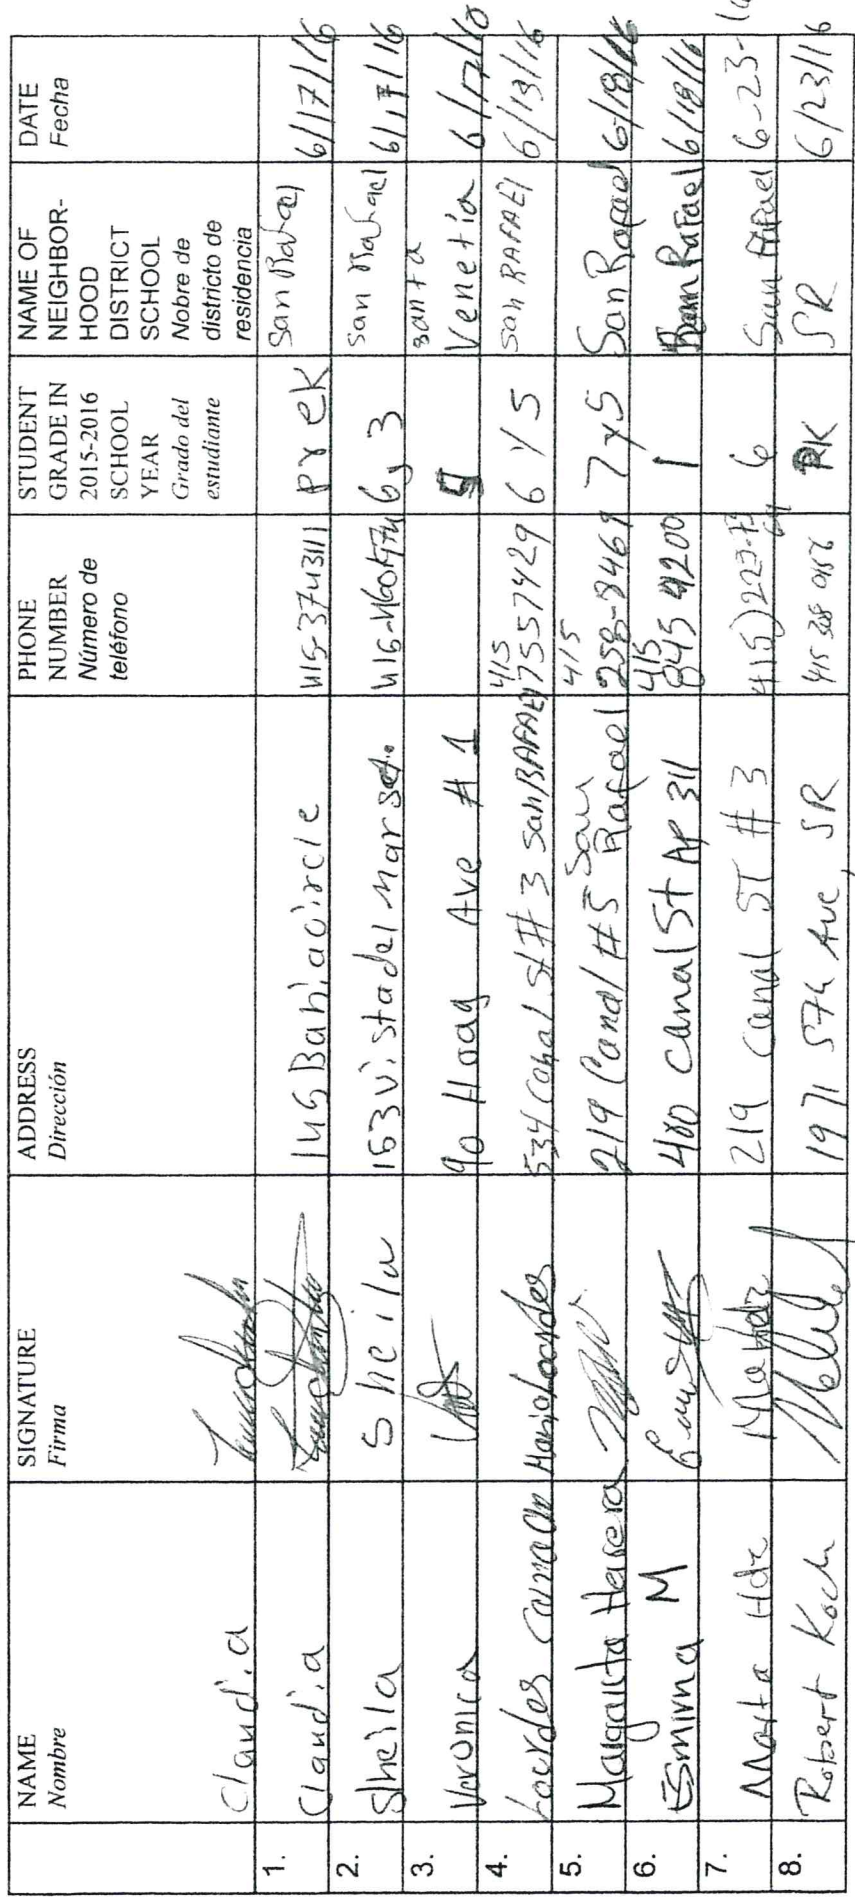 NAME
Nombre
SIGNATURE
Firma
ADDRESS
Dirección
PHONE
NUMBER
Número de
teléfono
STUDENT
GRADE IN
2015-2016
SCHOOL
YEAR
Grado del
estudiante
NAME OF
NEIGHBOR-
HOOD
DISTRICT
SCHOOL
Nobre de
districto de
residencia
DATE
Fecha
Claudia
1. Claudia 145 Bahia circle 415-3743111 prek San Rafael 6/17/16
2. Sheila Sheila 153 vista del mar 6 y 3 San Rafael 6/17/16
3. Veronica 90 Hoag Ave #1 santa Venetia
4. Lourdes Maria Lourdes 534 Canal St # 3 San RAFAEl 415 7557429 6 y 5 San RAFAEl 6/13/16
5. Margarita Herrera 219 Canal #5 San Rafael 415 258-8469 7 y 5 San Rafael 6/18/16
6. Esmirna M 400 Canal St Ap 311 415 845 4200 1 San Rafael 6/18/16
7. Marta Hdz M Hdz 219 Canal ST # 3 6 San Rafael 6-23-16
8. Robert Koch 1971 5th Ave, SR PK SR 6/23/16